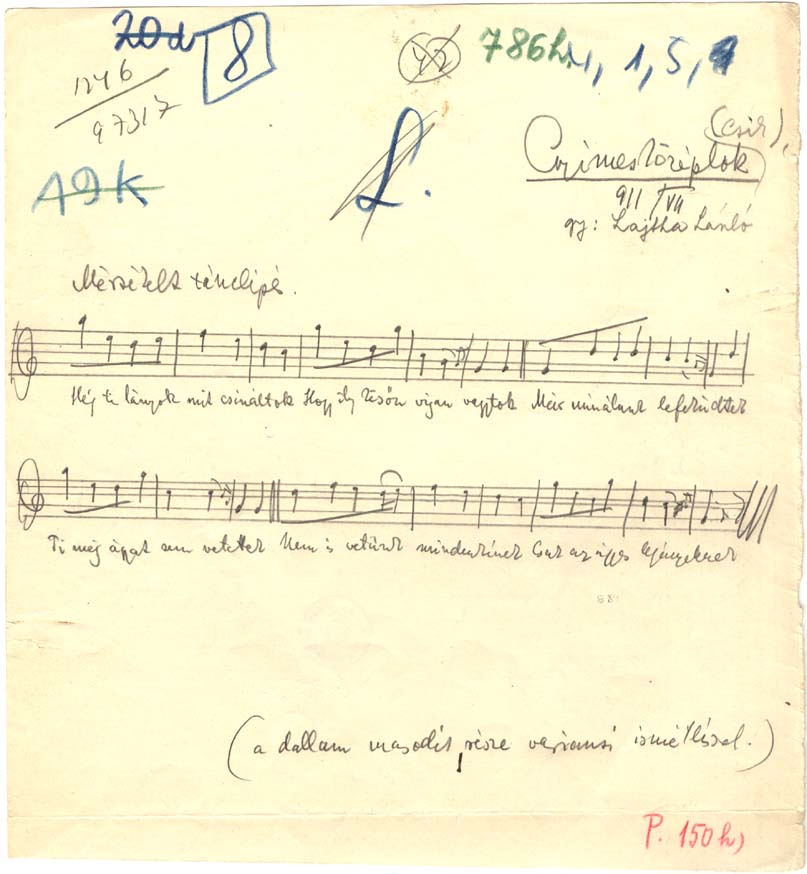 20d 8
1246
97317
42
786h, 1, 5,
(Csík),
19K
L.
Csíkmes
911/VII
gy: Lajtha László
Mérsékelt
Héj ti lányok mit csináltok Hogy ily későn vígan vagytok Már minálunk lefeküdtek
Ti még ágyat sem vetettek Nem is vetünk mindenkinek Csak az ügyes legényeknek
(a dallam második része variansú ismétléssel.)
P. 150h)